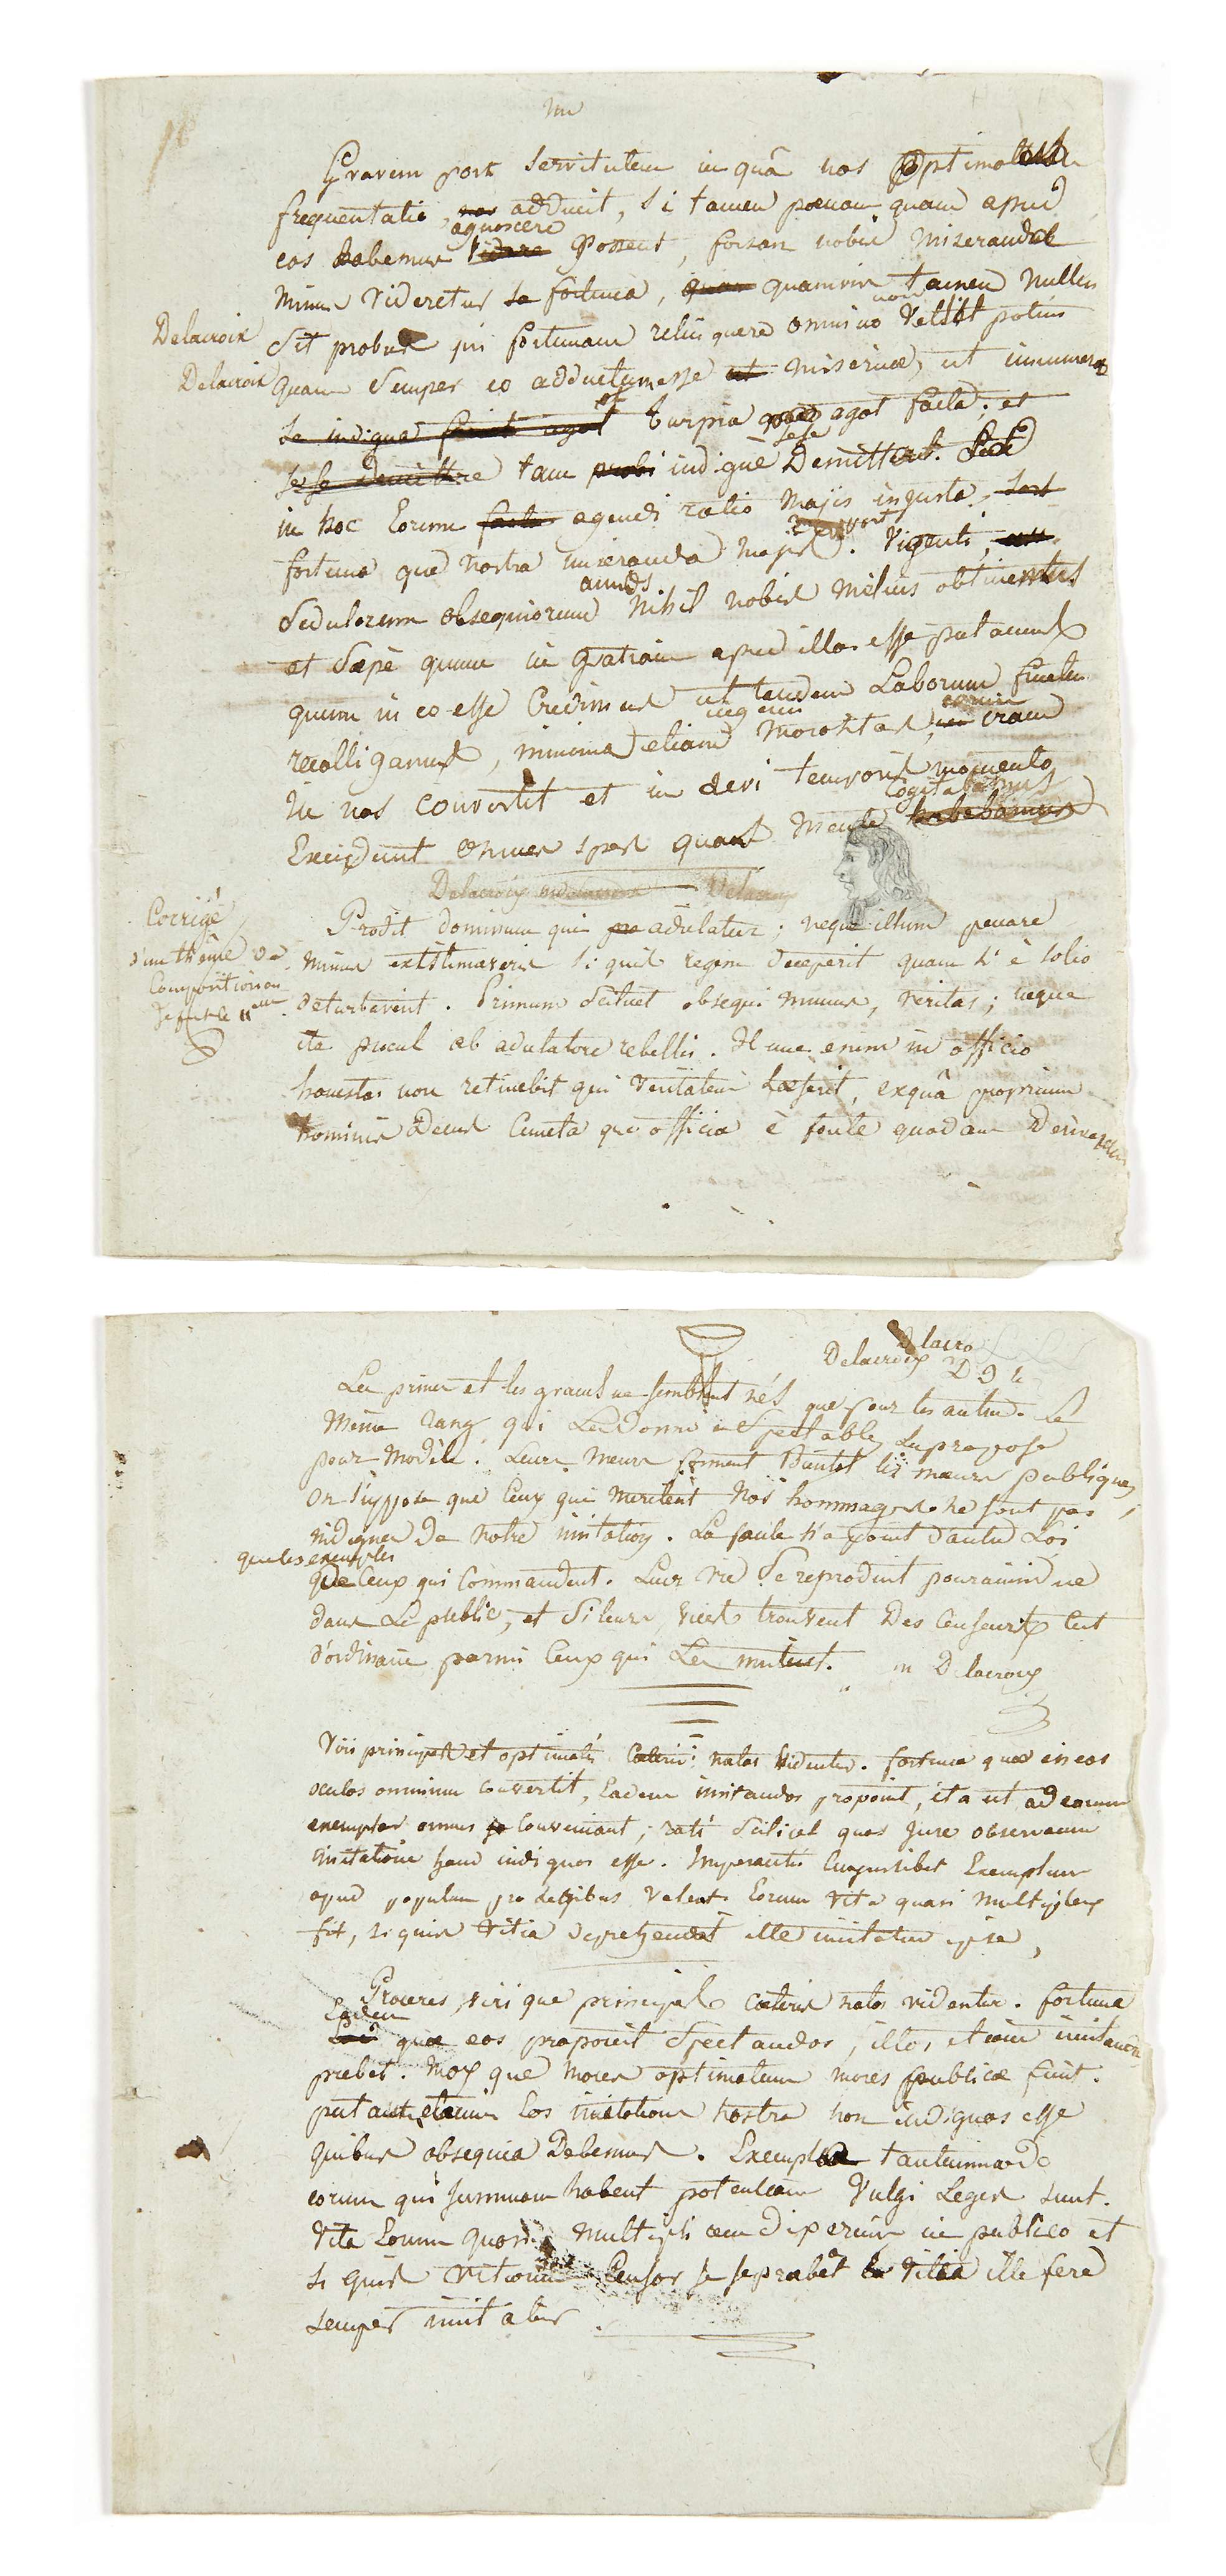 Gravem post servitutem in quâ nos
frequentatio, nos adducit, si tamen poenam quam apud
agnoscere
eos habemus videre possent, forsan nobis miseranda
minus videretur fortuna, quam quamvis tamen nullus
non
Delacroix
sit probus qui fortunam relinquere omnino velit potius
Delacroix
quam semper eo adductum esse ut miseriae, ut innumera
se indigna agat turpia agat facta; et
sese
sese demittere tam probi indignè demittat. Sed
in hoc eorum facta agendi ratio magis injusta,
fortuna que nostra miseranda magis. Viginti
annos
sedulorum obsequiorum nihil nobis melius
et saepè quum in gratiam apud illos esse putamus
quum in eo esse credimus ut tandem laborum fructus
recolligamus, minima etiam iram
in nos convertit et in temporis momento
cogitabamus
Excidunt omnes spes quas mente habebamus
Delacroix
Corrigé
d'un thême de
Composition ou
je fus le 11eme
Prodit dominum qui adulatur; neque illum peccare
minus existimaveris si quis regem deceperit quam si è solio
deturbaverit. Primum scilicet obsequi munus, veritas; neque
ita procul ab adulatore rebellis. Hunc enim in officio
honestas non retinebit qui veritatem laeserit, ex quâ proprium
hominis decus cuncta que officia è fonte quodam
Delacroix
Delacroix
Les princes et les grands ne semblent nés que pour les autres. Le
même rang qui les donne en spectacle, les propose
pour modèle. Leurs meurs forment bientôt les moeurs publiques,
on suppose que ceux qui méritent nos hommages ne sont pas
indignes de notre imitation. La foule n'a point d'autre loi
que les exemples
de ceux qui commandent. Leur vie se reproduit pour ainsi dire
dans le public, et si leurs vices trouvent des censeurs c'est
d'ordinaire parmi ceux qui les imitent. Delacroix
Viri principes et optimates caeteris natos videntur. fortuna quae in eos
oculos omnium convertit, eadem imitandos proponit, ita ut ad eorum
exemplar omnes conveniant; rati scilicet quos jure observamus
imitatione haud indignos esse. Imperantis exemplum
apud populum pro legibus valent. Eorum vita quasi multiplex
fit, si quis vitia deprehendat ille imitatur ipse,
Proceres, viri que principes caeteris natos videntur. fortuna
Eadem
quae eos proponit spectandos, illos etiam
prebet. mox que mores optimatum mores publicae fiunt.
putant etenim eos imitatione nostra non indignos esse
quibus obsequia debemus. Exempla tantummodo
eorum qui summam habent potentiam vulgi leges sunt.
Vita eorum quasi in publico et
si quis vitiorum censor sese praebet vitia ille ferè
semper imitatur.